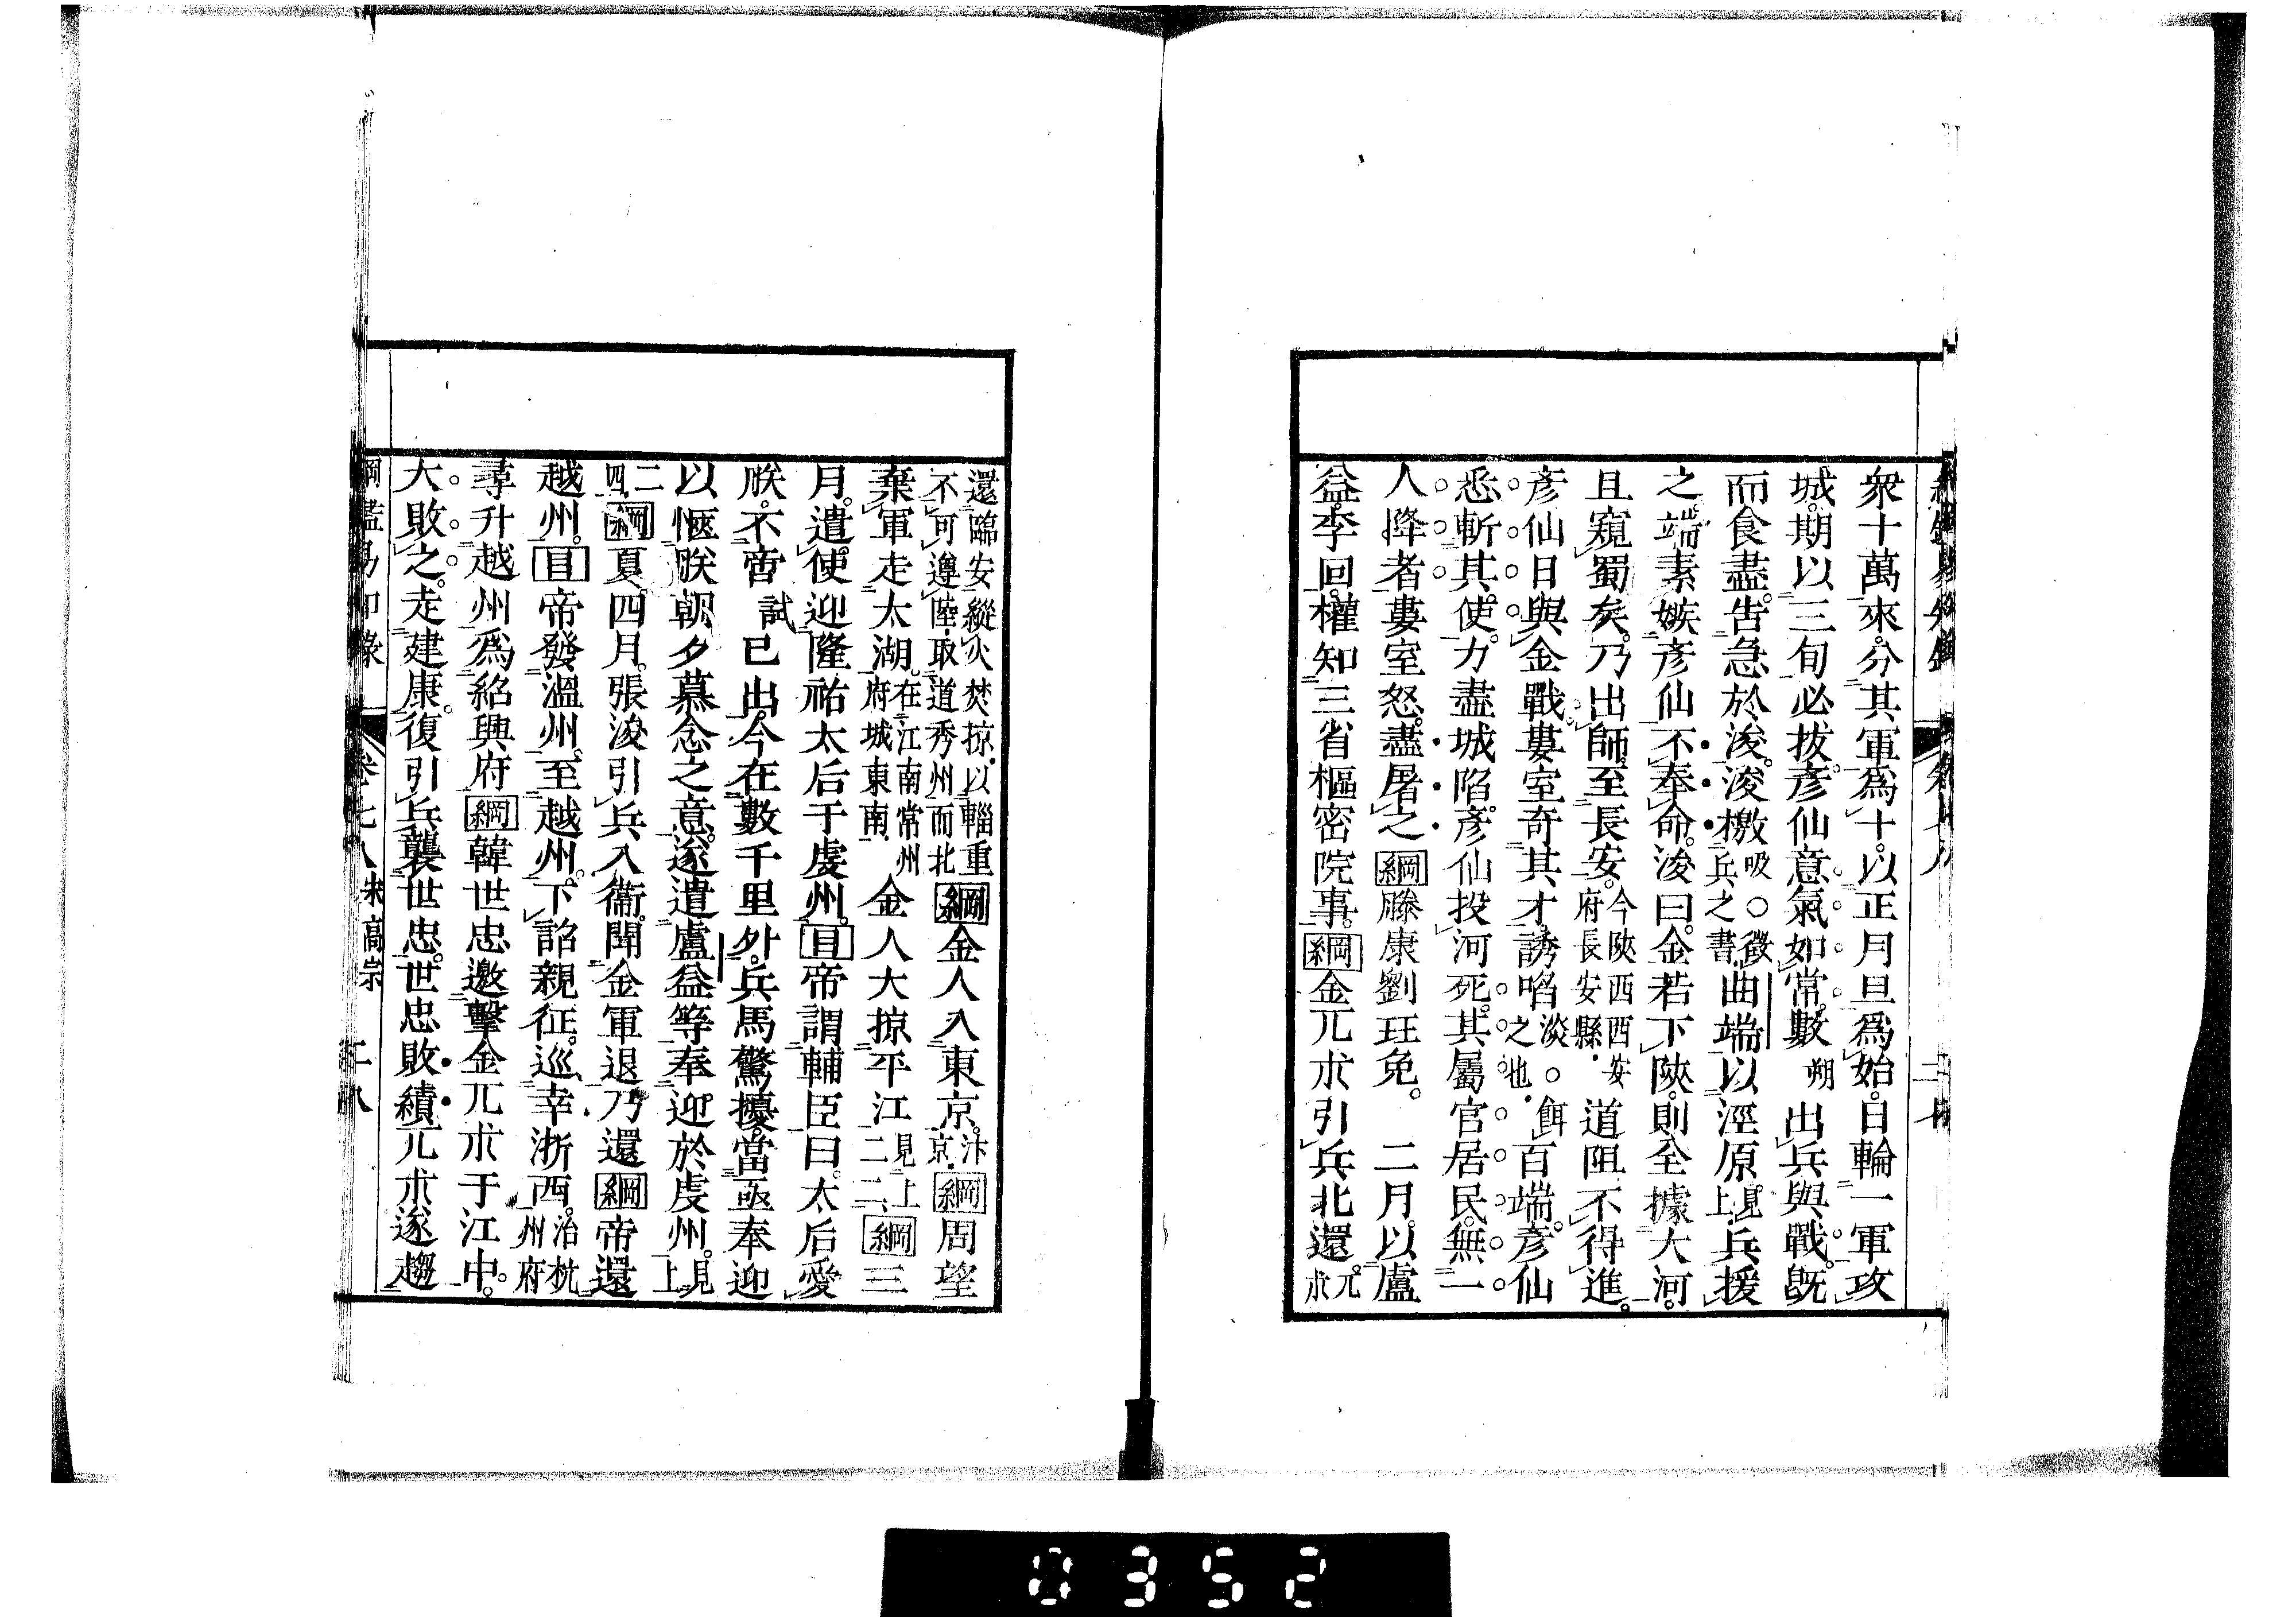 衆十萬來。分其軍爲十。以正月旦爲始。日輪一軍攻
城。期以三旬必拔。彥仙意氣如常。數朔出兵與戰。既
而食盡。告急於浚。浚檄吸○徵兵之書曲端以涇原見上兵援
之。端素嫉彥仙不奉命。浚曰。金若下陝。則全據大河。
且窺蜀矣。乃出師至長安。今陝西西安府長安縣。道阻不得進。
彥仙日與金戰。婁室奇其才。誘啗淡○餌之也。百端。彥仙
悉斬其使。力盡城陷。彥仙投河死。其屬官居民。無一
人降者婁室怒。盡屠之綱滕康劉珏免。二月。以盧
益。李回。權知三省樞密院事。綱金兀朮引兵北還。兀朮
還臨安縱火焚掠。以輜重
不可遵陸。取道秀州而北綱金人入東京。汴京。綱周望
棄軍走太湖。在江南常州府城東南。金人大掠平江見上二二、綱三
月。遣使迎隆祐太后于虔州。目帝謂輔臣曰。太后愛
朕。不啻試已出。今在數千里外。兵馬驚擾。當亟奉迎
以愜朕朝夕慕念之意。遂遣盧益等奉迎於虔州。見上
二四、綱夏。四月。張浚引兵入衞。聞金軍退乃還綱帝還
越州。目帝發溫州。至越州。下詔親征。巡幸浙西。治杭州府
尋升越州爲紹興府綱韓世忠邀擊金兀朮于江中。
大敗之。走建康。復引兵襲世忠。世忠敗績兀朮遂趨
綱鑑易知錄 卷七八 宋高宗 二八
0352